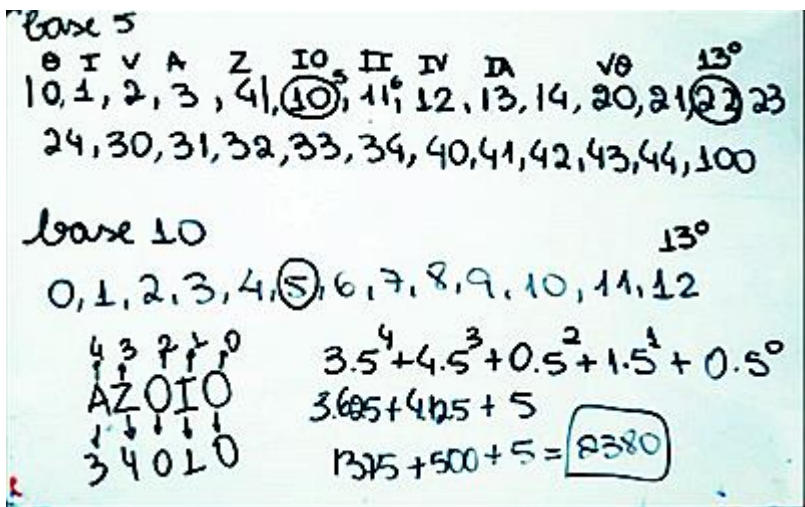 base 5
θ I V A Z IO II IV IA Vθ 13º
|0, 1, 2, 3, 4|, 10⁵, 11⁶, 12, 13, 14, 20, 21, 22, 23
24, 30, 31, 32, 33, 34, 40, 41, 42, 43, 44, 100
base 10
13º
0, 1, 2, 3, 4, 5, 6, 7, 8, 9, 10, 11, 12
4 3 2 1 0
AZOIO
3 4 0 1 0
3.5⁴+4.5³+0.5²+1.5¹+0.5⁰
3.625+4.125+5
1375+500+5=2380